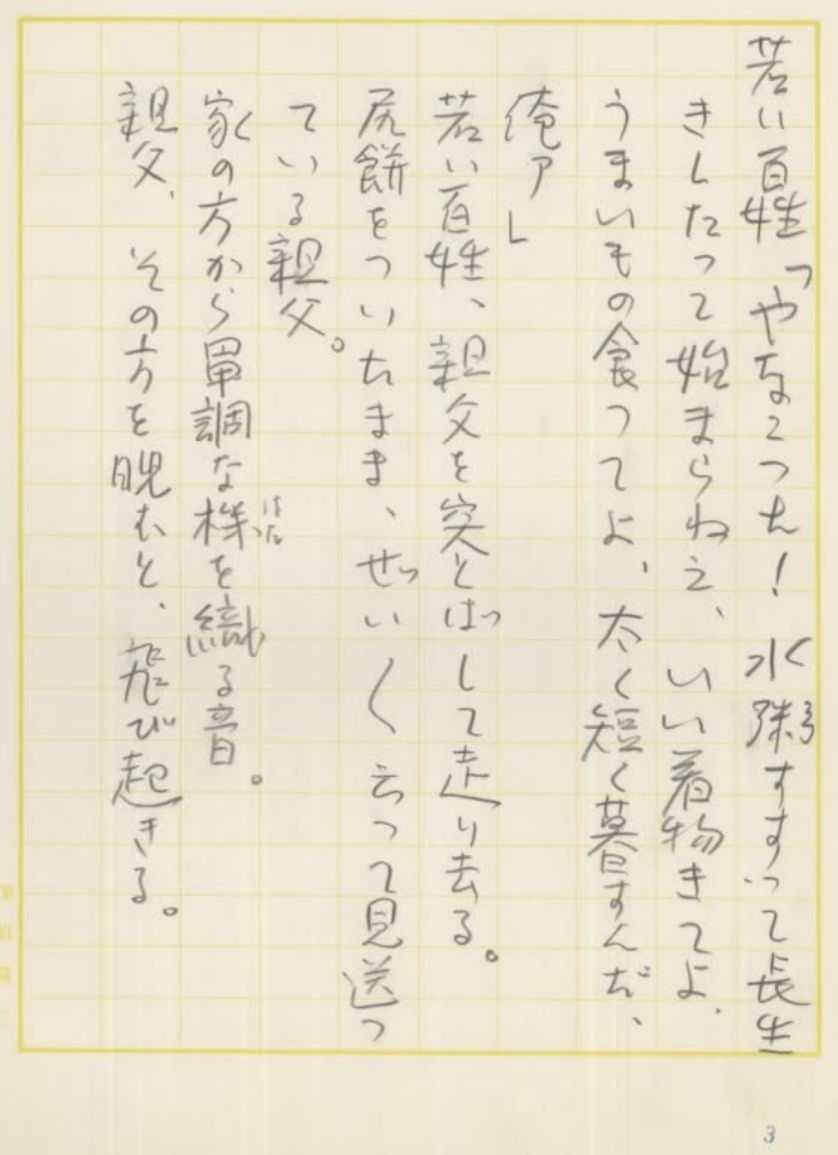 若い百姓「やなこった！ 水粥すすって長生
きしたって始まらねえ、いい着物きてよ、
うまいもの食ってよ、太く短く暮すんだ、
俺ァ」
若い百姓、親父を突とばして走り去る。
尻餅をついたまま、ぜいく云って見送っ
ている親父。
家の方から単調な機を織る音。
はた
親父、その方を睨むと、飛び起きる。
3